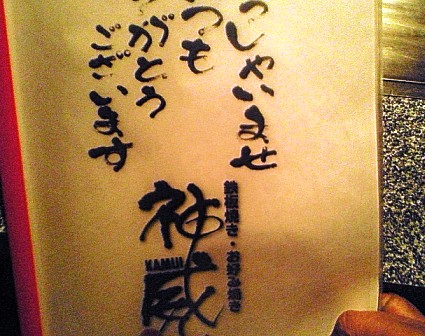 っしゃいませ
つも
がとう
ございます
鉄板焼き・お好み焼き
神威
KAMUI